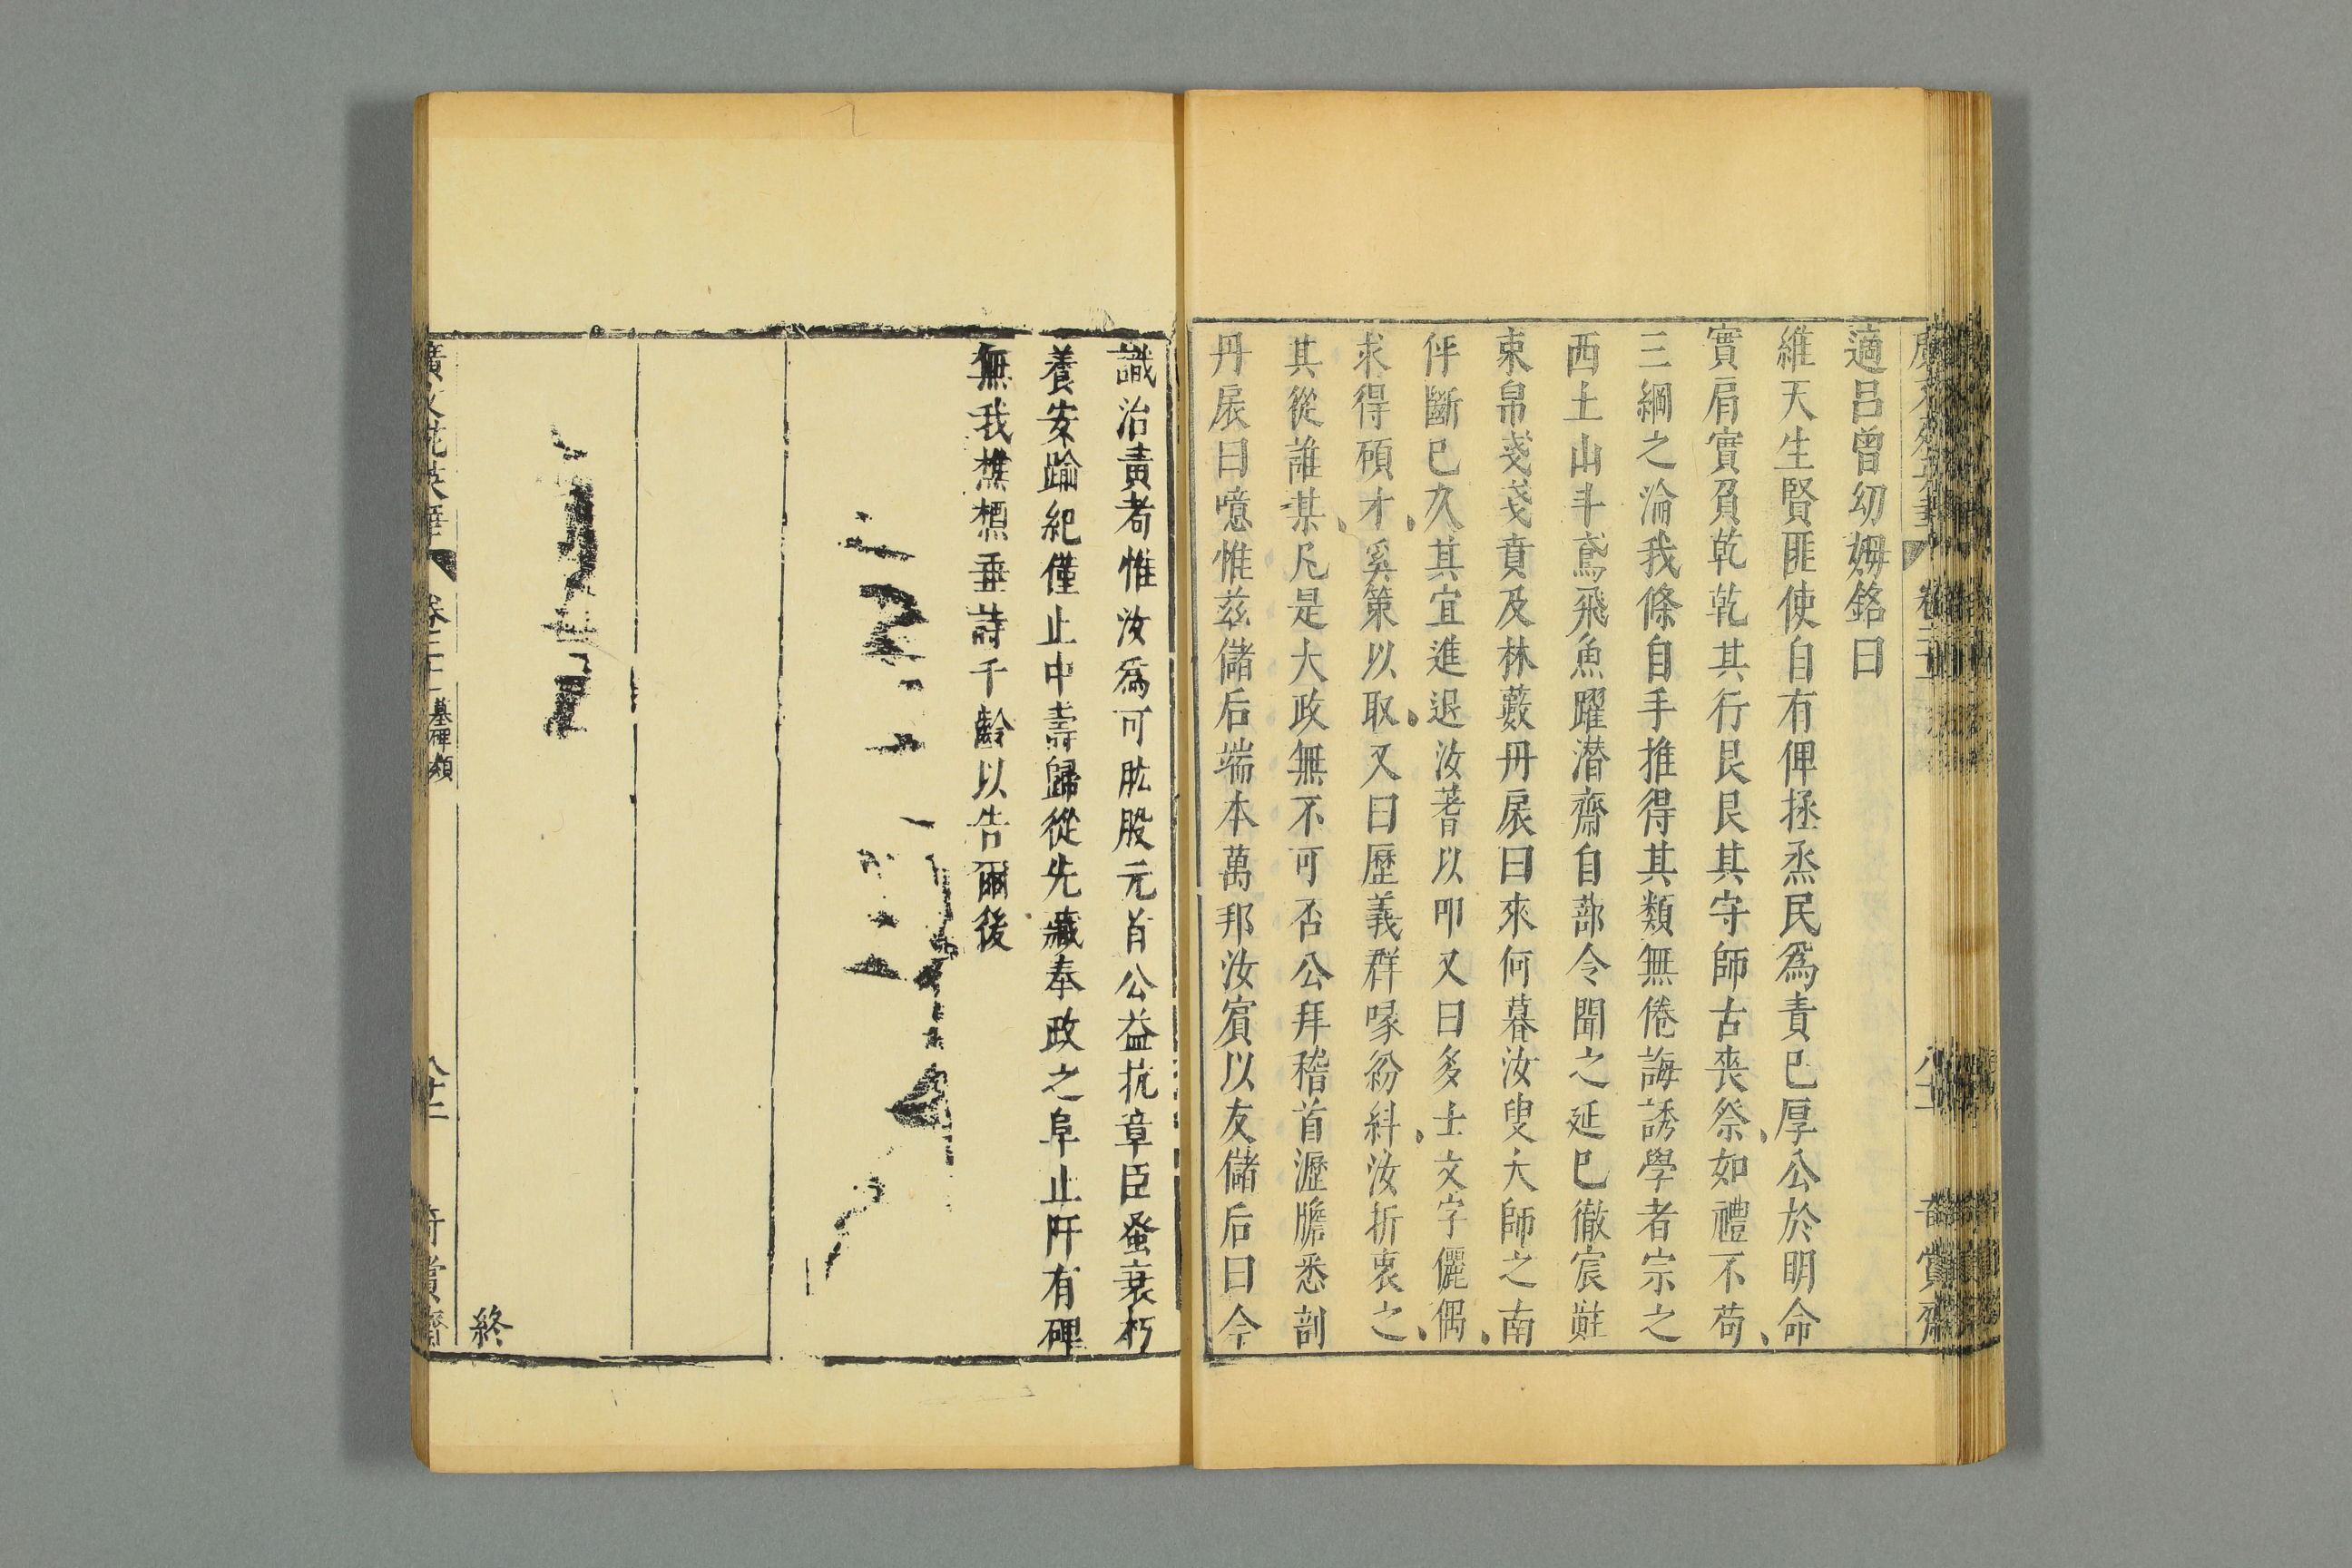 適呂曾幼姆銘曰
維天生賢匪使自有俾拯烝民爲責已厚公於明命
實肩實負乾乾其行艮艮其守師古喪祭如禮不苟
三綱之淪我條自手推得其類無倦誨誘學者宗之
西土山斗鳶飛魚躍潛齋自蔀令聞之延已徹宸黈
束帛戔戔賁及林藪丹扆曰來何暮汝叟大師之南
伻斷已久其宜進退汝蓍以叩又曰多士文字儷偶
求得碩才奚策以取又曰歷義群喙紛糾汝折衷之
其從誰某凡是大政無不可否公拜稽首瀝膽悉剖
丹扆曰噫惟茲儲后端本萬邦汝賓以友儲后曰今
識治責者惟汝爲可肱股元首公益抗章臣蚤衰朽
養安踰紀僅止中壽歸從先藏奉政之阜止阡有碑
無我樵槱垂詩千齡以告爾後
終
廣文苑英華 卷二十 墓碑類 八十二 奇賞齋